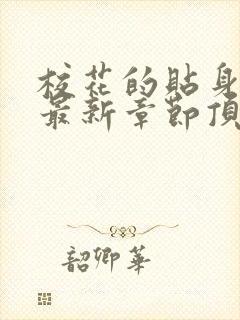 校花的貼身
最新章節頂
韶卿華